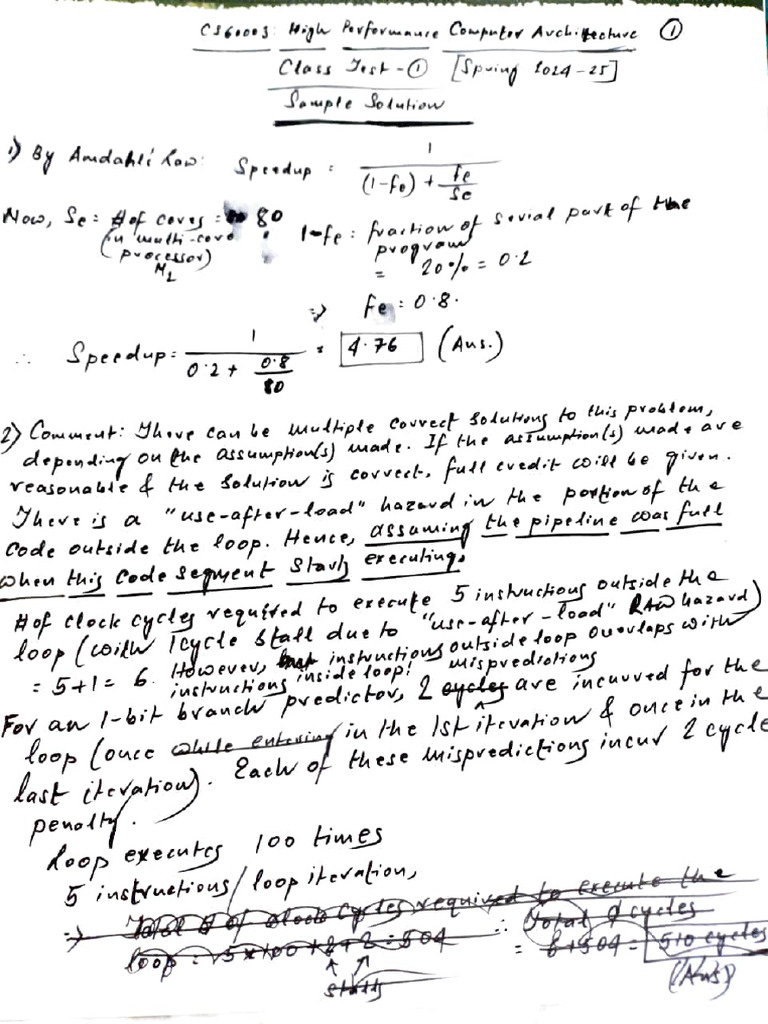 CS60003: High Performance Computer Architecture ①
Class Test-① [Spring 2024-25]
Sample Solution
1) By Amdahl's Law: Speedup = 1 / ((1-fe) + fe/Se)
Now, Se = # of cores = 80
(in multi-core processor) M1
1-fe : fraction of serial part of the program
= 20% = 0.2
⇒ Fe = 0.8.
∴ Speedup = 1 / (0.2 + 0.8/80) = 4.76 (Ans.)
2) Comment: There can be multiple correct solutions to this problem,
depending on the assumption(s) made. If the assumption(s) made are
reasonable & the solution is correct, full credit will be given.
There is a "use-after-load" hazard in the portion of the
code outside the loop. Hence, assuming the pipeline was full
when this code segment starts executing,
# of clock cycles required to execute 5 instructions outside the
loop (with 1 cycle stall due to "use-after-load" RAW hazard)
= 5+1 = 6. However, instructions outside loop overlaps with
instructions inside loop!
For an 1-bit branch predictor, 2 cycles mispredictions are incurred for the
loop (once while entering in the 1st iteration & once in the
last iteration). Each of these mispredictions incur 2 cycle
penalty.
Loop executes 100 times
5 instructions/loop iteration,
⇒ Total # of clock cycles required to execute the
loop = 5×100+2+2 = 504
↑ ↑
stalls
∴ Total # cycles
= 6+504 = 510 cycles
(Ans)